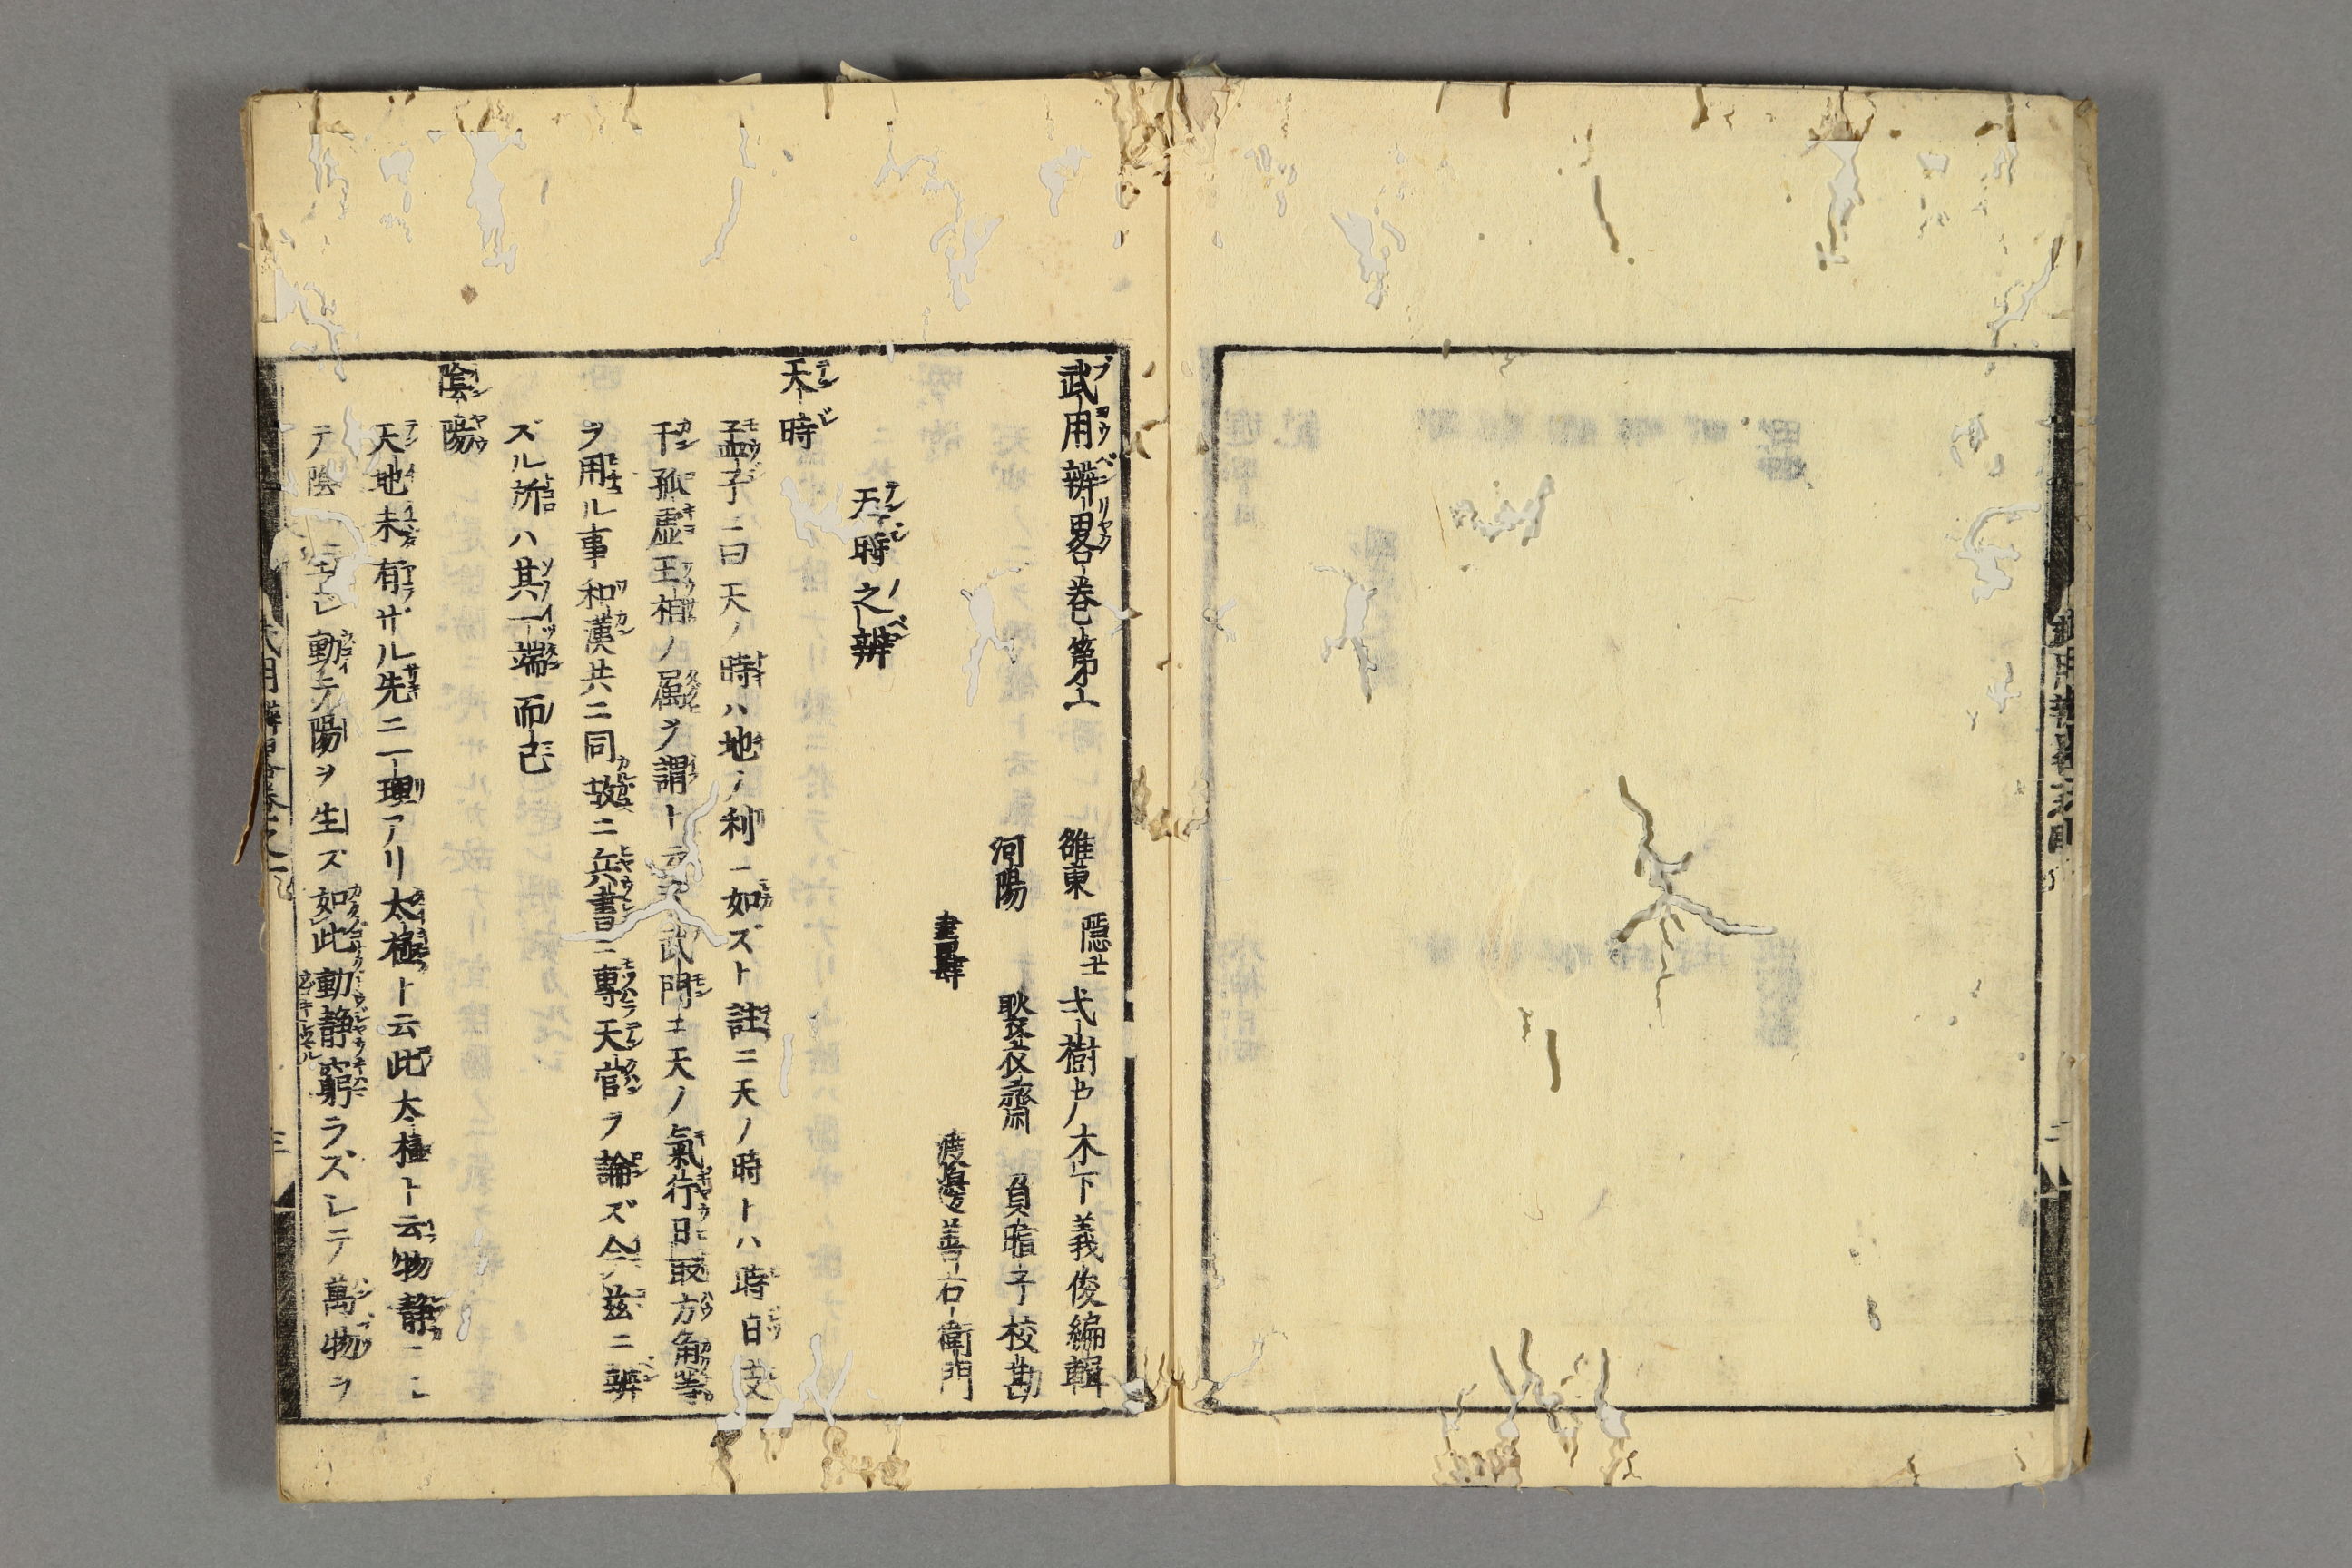 武用辨畧巻第一上
雒東 隠士 弌樹軒ノ木下義俊編輯
河陽 齋 負暄子校勘
書肆 渡邊善右衛門
天時之辨
天時
孟子ニ曰天ノ時ハ地ノ利ニ如ズト註ニ天ノ時トハ時日支
干孤虚王相ノ属ヲ謂ト云 武門ニ天ノ氣行日取方角等
ヲ用ル事和漢共ニ同故ニ兵書ニ專天官ヲ論ズ今茲ニ辨
ズル所ハ其一端而已
陰陽
天地未有ザル先ニ一理アリ太極ト云此太極ト云物静ニシ
テ陰 生シ動テ陽ヲ生ズ如此動静窮ラズシテ萬物ヲ
武用辨畧巻之一
三